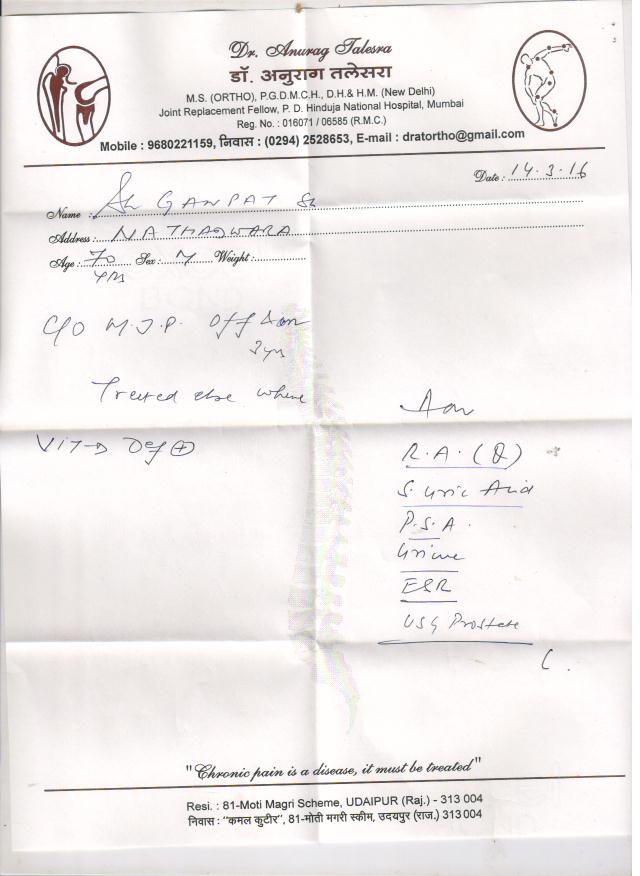 Dr. Anurag Talesra
डॉ. अनुराग तलेसरा
M.S. (ORTHO), P.G.D.M.C.H., D.H.& H.M. (New Delhi)
Joint Replacement Fellow, P. D. Hinduja National Hospital, Mumbai
Reg. No. : 016071 / 06585 (R.M.C.)
Mobile : 9680221159, निवास : (0294) 2528653, E-mail : dratortho@gmail.com
Date : 14.3.16
Name : Sh GANPAT
Address : NATHADWARA
Age : 70 yrs Sex : M Weight :
C/O M.J.P. Off & on
3 yrs
Treated else where
Adv
VIT D Def +
R.A. (Q)
S. Uric Acid
P.S.A.
Urine
ESR
USG Prostate
"Chronic pain is a disease, it must be treated"
Resi. : 81-Moti Magri Scheme, UDAIPUR (Raj.) - 313 004
निवास : "कमल कुटीर", 81-मोती मगरी स्कीम, उदयपुर (राज.) 313 004